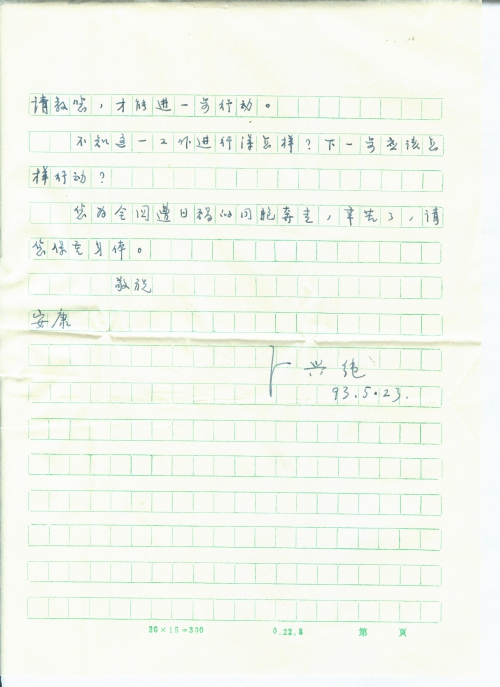 请教您，才能进一步行动。
不知这一工作进行得怎样？下一步应该怎
样行动？
您为全国遭日祸的同胞奔走，辛苦了，请
您保重身体。
敬祝
安康
卜兴纯
93.5.23.
20×15=300 0.22.8 第 页